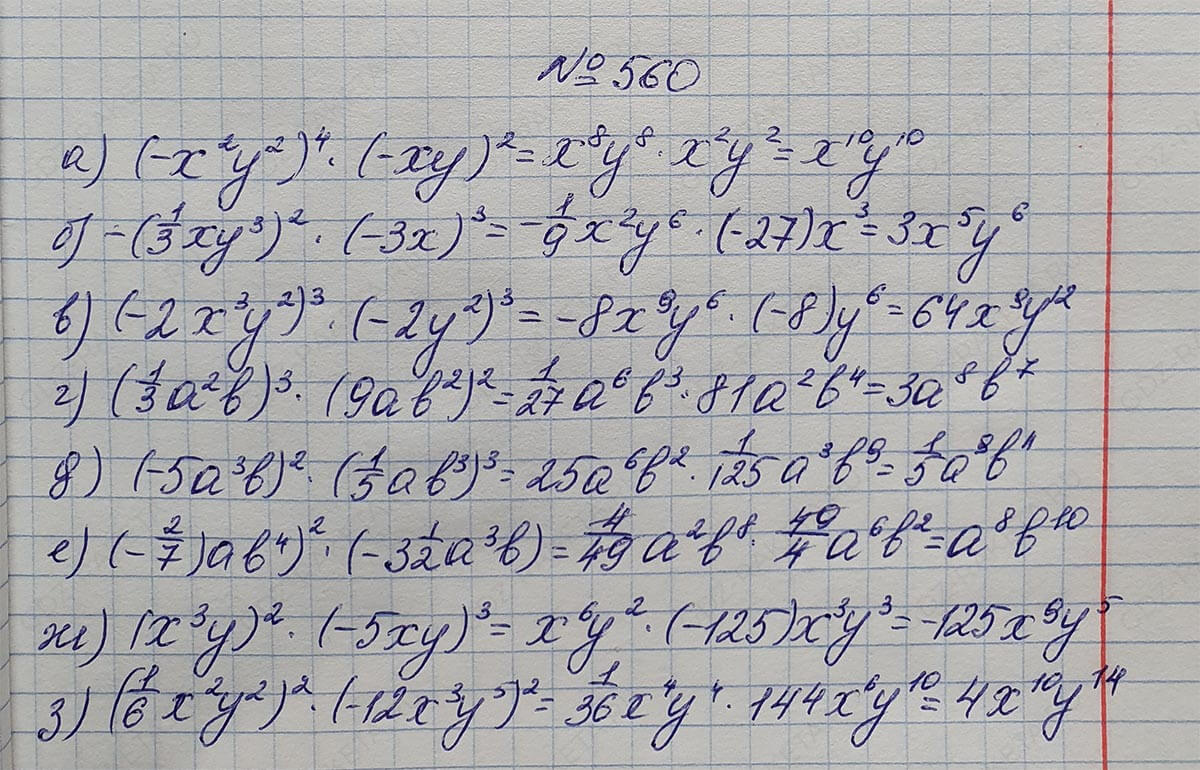 № 560
а) (-x²y²)⁴ · (-xy)² = x⁸y⁸ · x²y² = x¹⁰y¹⁰
б) -(1/3xy³)² · (-3x)³ = -1/9x²y⁶ · (-27)x³ = 3x⁵y⁶
в) (-2x³y²)³ · (-2y²)³ = -8x⁹y⁶ · (-8)y⁶ = 64x⁹y¹²
г) (1/3a²b)³ · (9ab²)² = 1/27a⁶b³ · 81a²b⁴ = 3a⁸b⁷
д) (-5a³b)² · (1/5ab³)³ = 25a⁶b² · 1/125a³b⁹ = 1/5a⁹b¹¹
е) (-2/7)ab⁴)² · (-3 1/2a³b) = 4/49a²b⁸ · 49/4a⁶b² = a⁸b¹⁰
ж) (x³y)² · (-5xy)³ = x⁶y² · (-125)x³y³ = -125x⁹y⁵
з) (1/6x²y²)² · (-12x³y⁵)² = 1/36x⁴y⁴ · 144x⁶y¹⁰ = 4x¹⁰y¹⁴